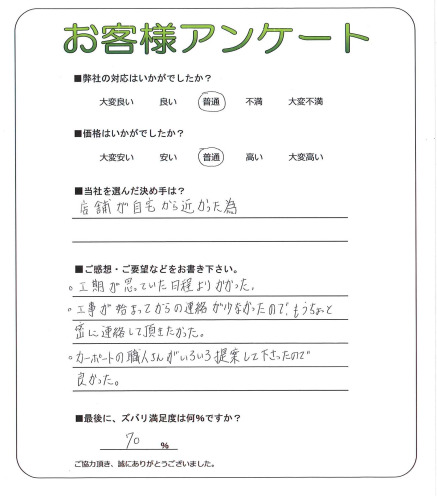 お客様アンケート
■弊社の対応はいかがでしたか?
大変良い 良い 普通 不満 大変不満
■価格はいかがでしたか?
大変安い 安い 普通 高い 大変高い
■当社を選んだ決め手は?
店舗が自宅から近かった為
■ご感想・ご要望などをお書き下さい。
○工期が思っていた日程よりかかった。
○工事が始まってからの連絡が少なかったので、もうちょっと
密に連絡して頂きたかった。
○カーポートの職人さんがいろいろ提案して下さったので
良かった。
■最後に、ズバリ満足度は何%ですか?
70 %
ご協力頂き、誠にありがとうございました。